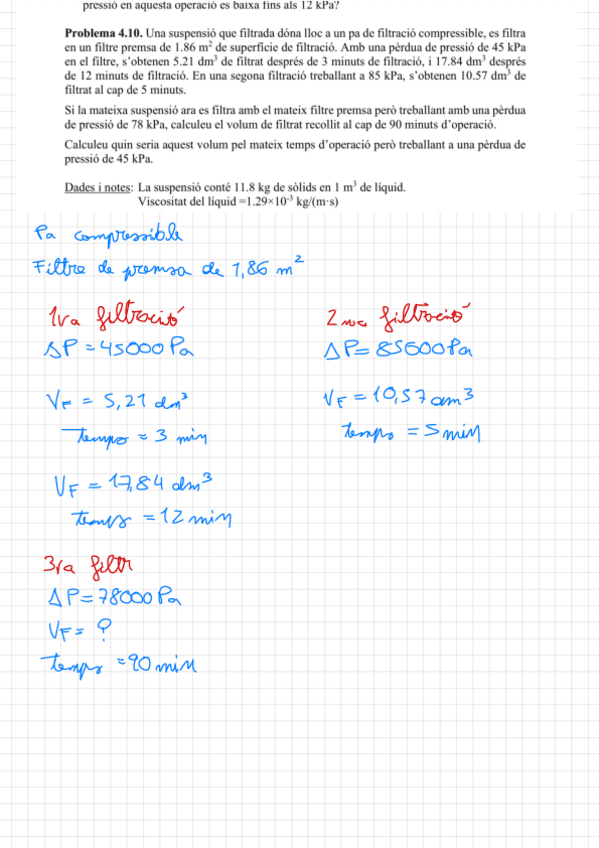 pressió en aquesta operació es baixa fins als 12 kPa?
Problema 4.10. Una suspensió que filtrada dóna lloc a un pa de filtració compressible, es filtra
en un filtre premsa de 1.86 m² de superfície de filtració. Amb una pèrdua de pressió de 45 kPa
en el filtre, s'obtenen 5.21 dm³ de filtrat després de 3 minuts de filtració, i 17.84 dm³ després
de 12 minuts de filtració. En una segona filtració treballant a 85 kPa, s'obtenen 10.57 dm³ de
filtrat al cap de 5 minuts.
Si la mateixa suspensió ara es filtra amb el mateix filtre premsa però treballant amb una pèrdua
de pressió de 78 kPa, calculeu el volum de filtrat recollit al cap de 90 minuts d'operació.
Calculeu quin seria aquest volum pel mateix temps d'operació però treballant a una pèrdua de
pressió de 45 kPa.
Dades i notes: La suspensió conté 11.8 kg de sòlids en 1 m³ de líquid.
Viscositat del líquid =1.29×10⁻³ kg/(m·s)
Pa compressible
Filtre de premsa de 1,86 m²
1ra filtració
ΔP = 45000 Pa
VF = 5,21 dm³
Temps = 3 min
VF = 17,84 dm³
temps = 12 min
2na filtració
ΔP = 85000 Pa
VF = 10,57 dm³
temps = 5 min
3ra filtr
ΔP = 78000 Pa
VF = ?
temps = 90 min